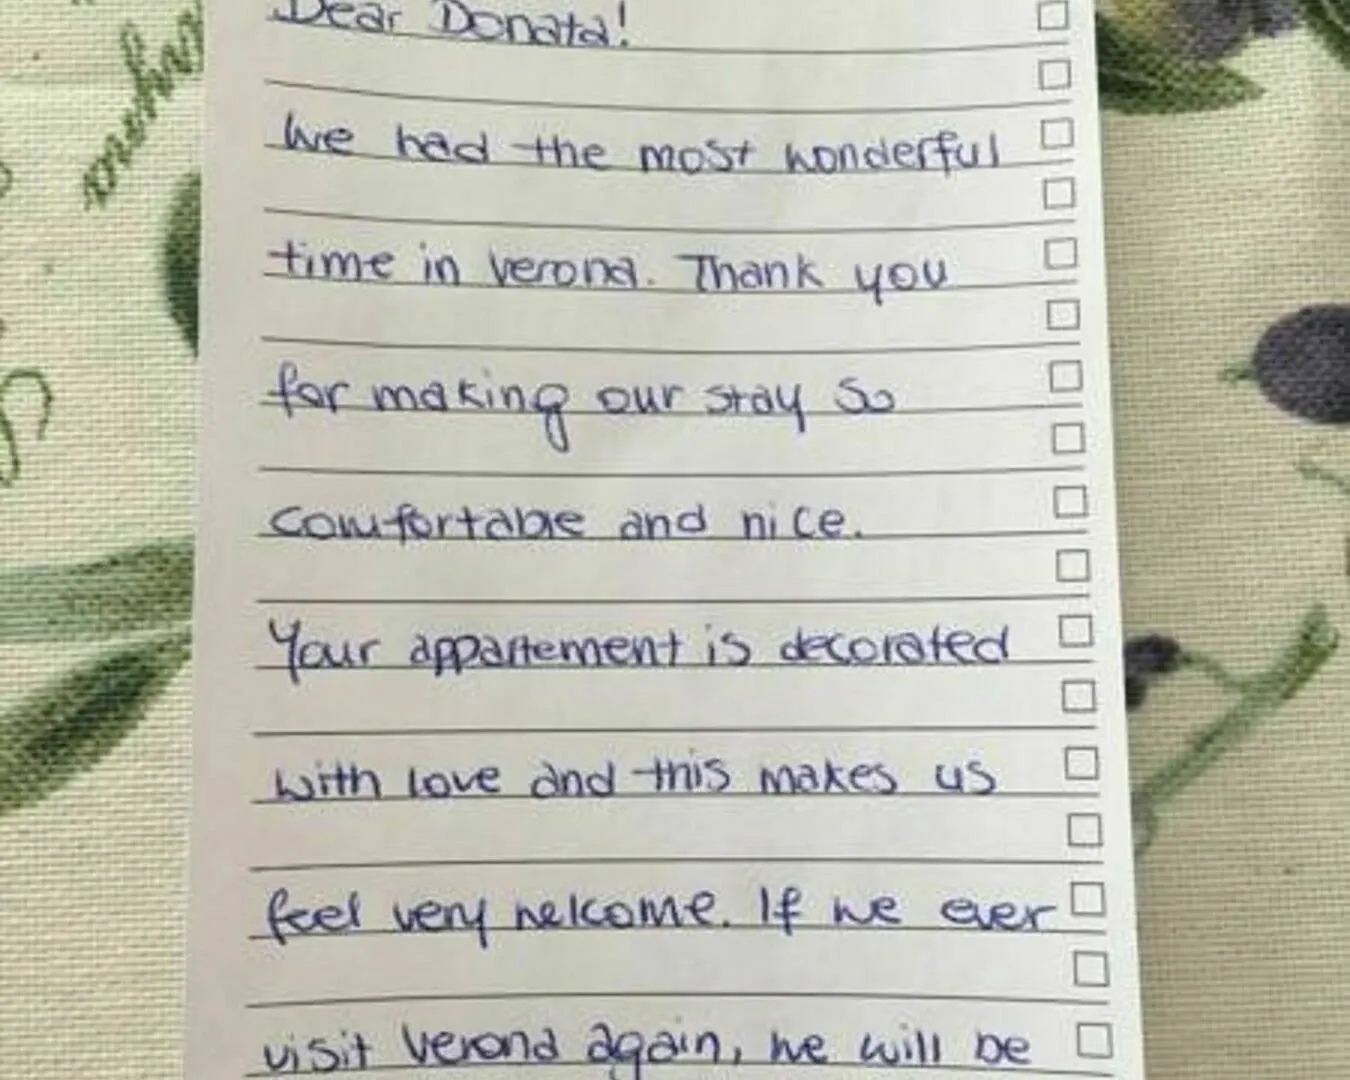 Dear Donata!
We had the most wonderful
time in Verona. Thank you
for making our stay so
comfortable and nice.
Your appartement is decorated
with love and this makes us
feel very welcome. If we ever
visit Verona again, we will be